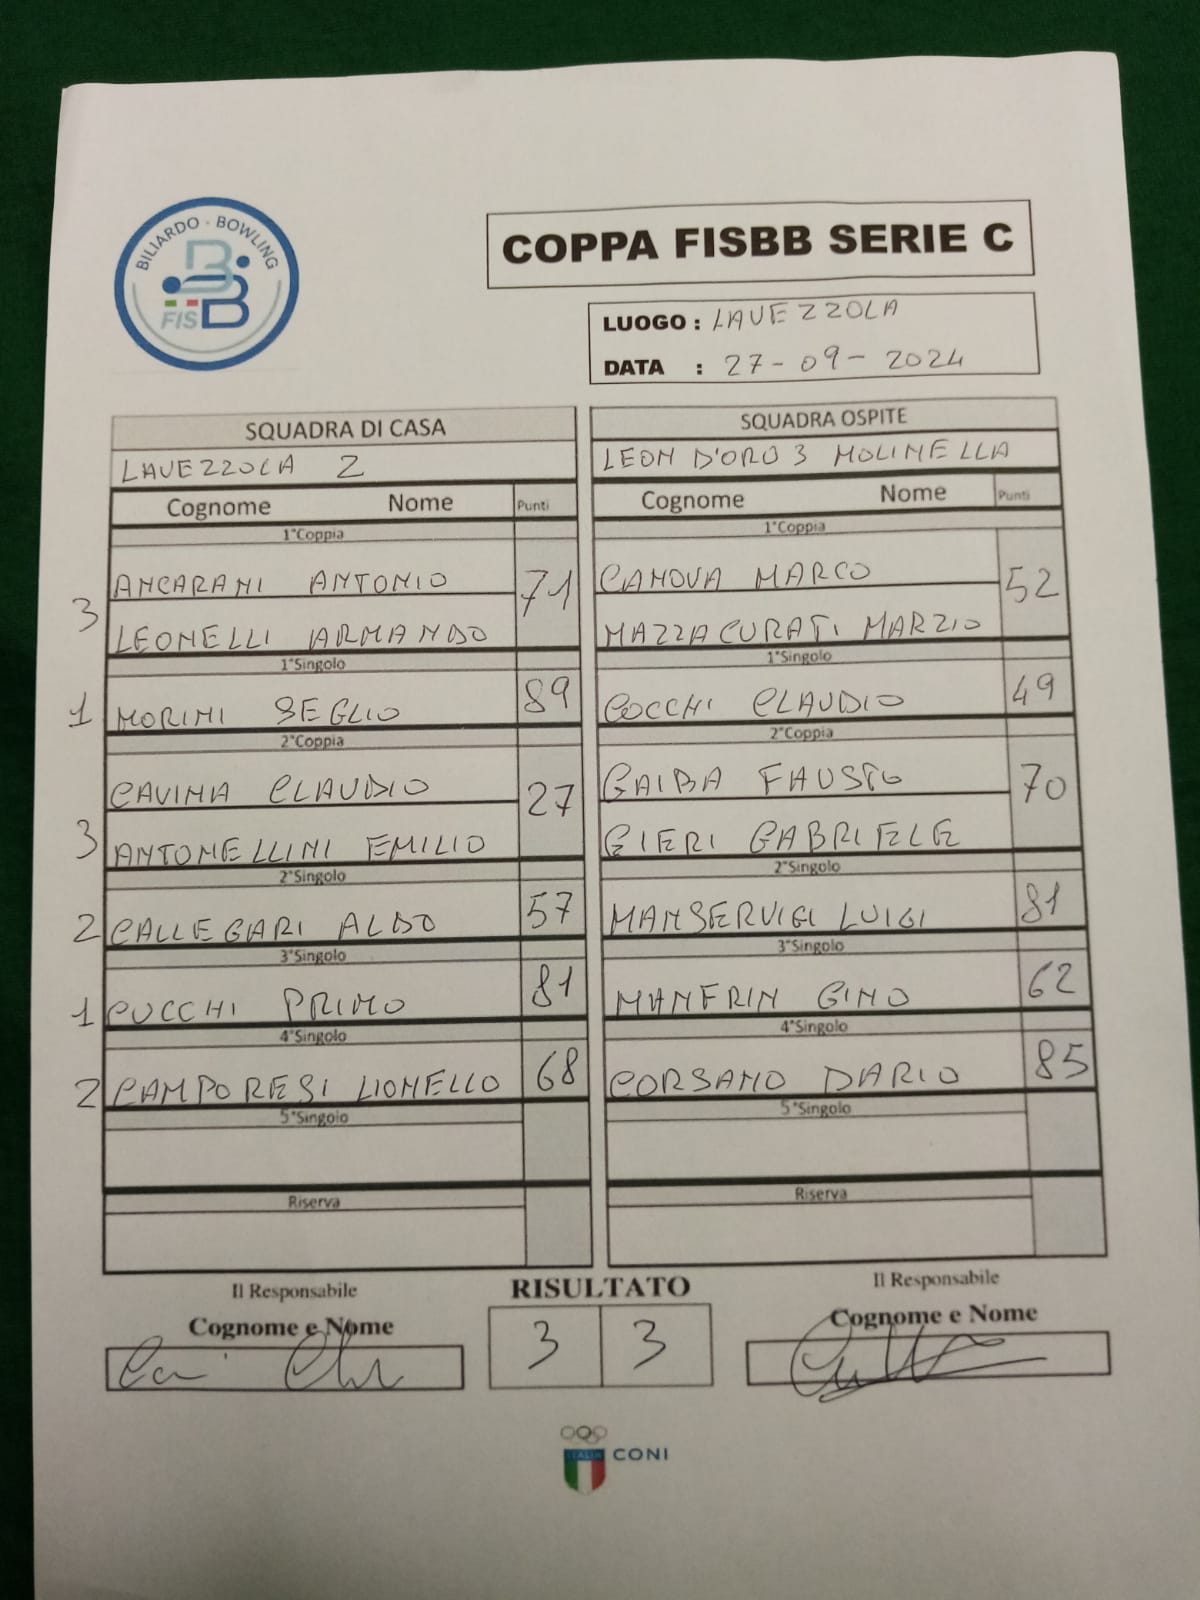 BILIARDO - BOWLING
FISBB
COPPA FISBB SERIE C
LUOGO : LAVEZZOLA
DATA : 27-09-2024
SQUADRA DI CASA
LAVEZZOLA 2
Cognome Nome Punti
1°Coppia
3 ANCARANI ANTONIO 71
LEONELLI ARMANDO
1°Singolo
1 MORINI SEGLIO 89
2°Coppia
CAVINA CLAUDIO 27
3 ANTONELLINI EMILIO
2°Singolo
2 CALLEGARI ALDO 57
3°Singolo
1 CUCCHI PRIMO 81
4°Singolo
2 CAMPORESI LIONELLO 68
5°Singolo
Riserva
SQUADRA OSPITE
LEON D'ORO 3 MOLINELLA
Cognome Nome Punti
1°Coppia
CANOVA MARCO 52
MAZZACURATI MARZIO
1°Singolo
COCCHI CLAUDIO 49
2°Coppia
GAIBA FAUSTO 70
GIERI GABRIELE
2°Singolo
MANSERVIGI LUIGI 81
3°Singolo
MANFRIN GINO 62
4°Singolo
CORSANO DARIO 85
5°Singolo
Riserva
Il Responsabile
Cognome e Nome
RISULTATO
3 3
Il Responsabile
Cognome e Nome
ITALIA CONI